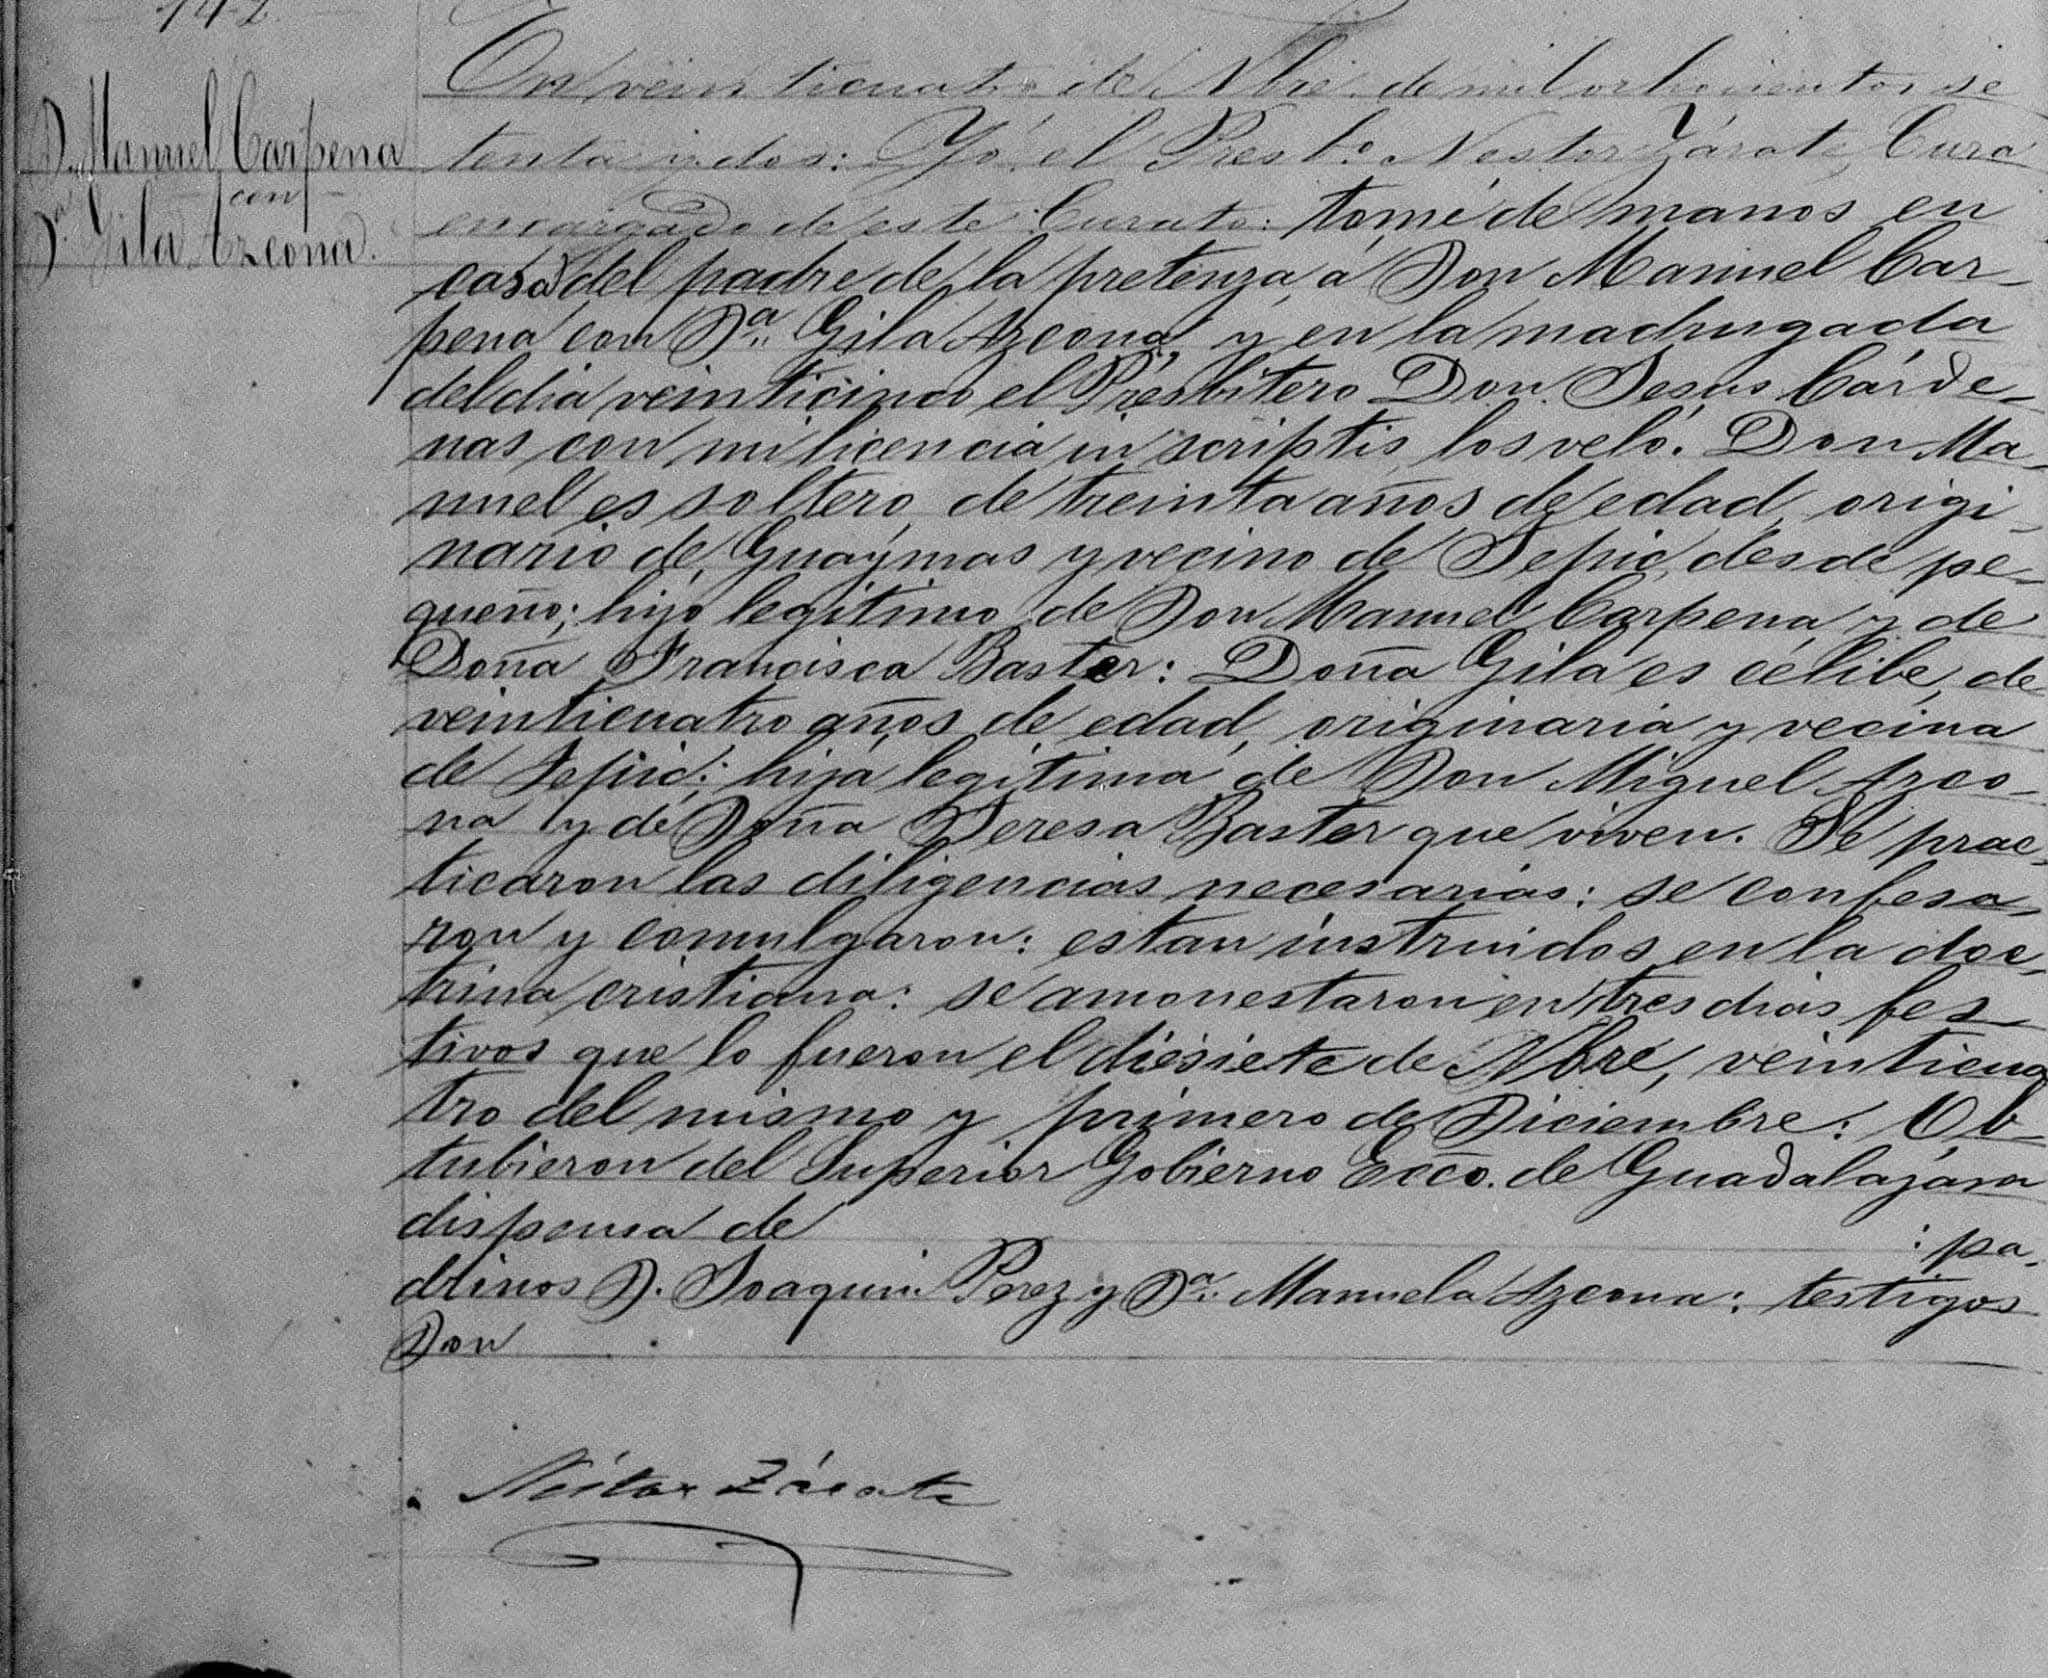 142
D. Manuel Carpena
con
Dª Gila Azcona.
En veinticuatro de Nbre. de mil ochocientos se
tenta y dos: Yó el Presb.o Nestor Zárate, Cura
encargado de este Curato: tomé de manos en
casa del padre de la pretenza, á Don Manuel Car-
pena con Dª Gila Azcona, y en la madrugada
del dia veinticinco el Presbitero Don Jesus Cárde-
nas con mi licencia in scriptis, los veló. Don Ma-
nuel es soltero, de treinta años de edad, origi-
nario de Guaymas y vecino de Tepic, desde pe-
queño; hijo legítimo de Don Manuel Carpena y de
Doña Francisca Baster: Doña Gila es célibe, de
veinticuatro años de edad, originaria y vecina
de Tepic; hija legítima de Don Miguel Azco-
na y de Doña Teresa Baster que viven. Se prac-
ticaron las diligencias necesarias: se confesa-
ron y comulgaron: estan instruidos en la doc-
trina cristiana: se amonestaron en tres dias fes-
tivos que lo fueron el diesiete de Nbre, veinticua
tro del mismo y primero de Diciembre: Ob-
tubieron del Superior Gobierno Ecco. de Guadalajara
dispensa de : pa-
drinos D. Joaquin Perez y Dª Manuela Azcona: testigos
Don
Néstor Zárate